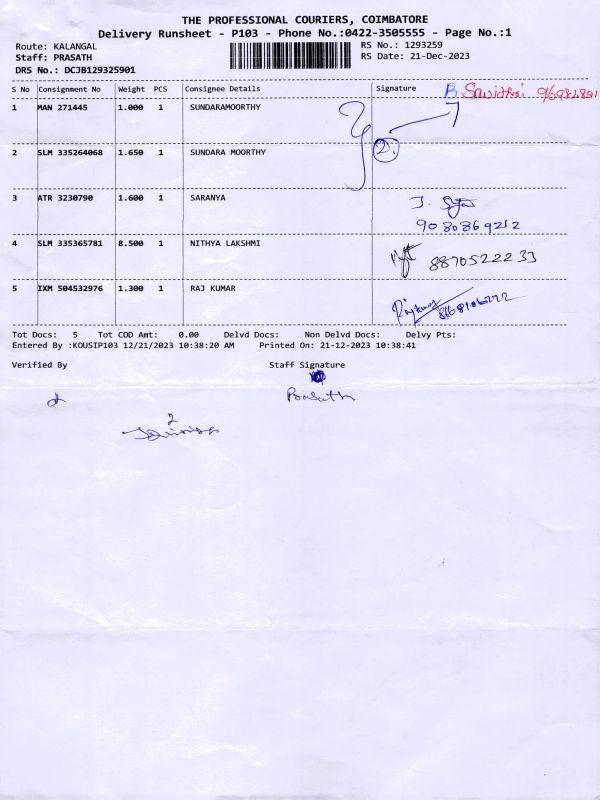 THE PROFESSIONAL COURIERS, COIMBATORE
Delivery Runsheet - P103 - Phone No.:0422-3505555 - Page No.:1
Route: KALANGAL
Staff: PRASATH
DRS No.: DCJB129325901
RS No.: 1293259
RS Date: 21-Dec-2023
S No Consignment No Weight PCS Consignee Details Signature B.
1 MAN 271445 1.000 1 SUNDARAMOORTHY
2 SLM 335264068 1.650 1 SUNDARA MOORTHY 2.
3 ATR 3230790 1.600 1 SARANYA J.
9080869212
4 SLM 335365781 8.500 1 NITHYA LAKSHMI 8870522233
5 IXM 504532976 1.300 1 RAJ KUMAR Rajkumar
Tot Docs: 5 Tot COD Amt: 0.00 Delvd Docs: Non Delvd Docs: Delvy Pts:
Entered By :KOUSIP103 12/21/2023 10:38:20 AM Printed On: 21-12-2023 10:38:41
Verified By Staff Signature
Prasath
2